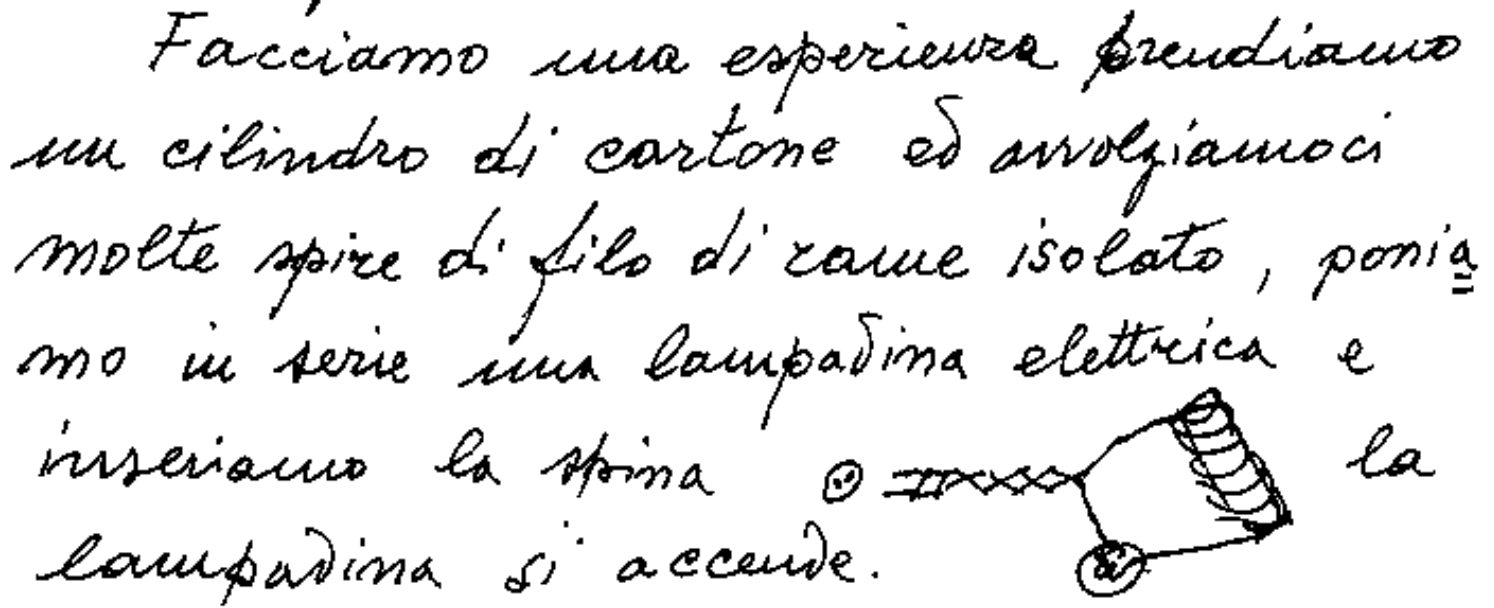 Facciamo una esperienza prendiamo
un cilindro di cartone ed avvolgiamoci
molte spire di filo di rame isolato, ponia
mo in serie una lampadina elettrica e
inseriamo la spina la
lampadina si accende.